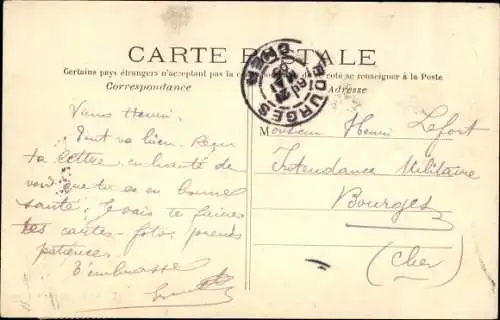 CARTE POSTALE
Certains pays étrangers n'acceptant pas la cet côté se renseigner à la Poste
Correspondance
Adresse
BOURGES
CHER
Vieux Henri.
Tout va bien. Reçu
ta lettre, enchanté de
que tu es en bonne
santé. Je vais te faire
tes cartes-foto. prends
patience
T'embrasse
Monsieur Henri Lefort
Intendance Militaire
Bourges
(Cher)